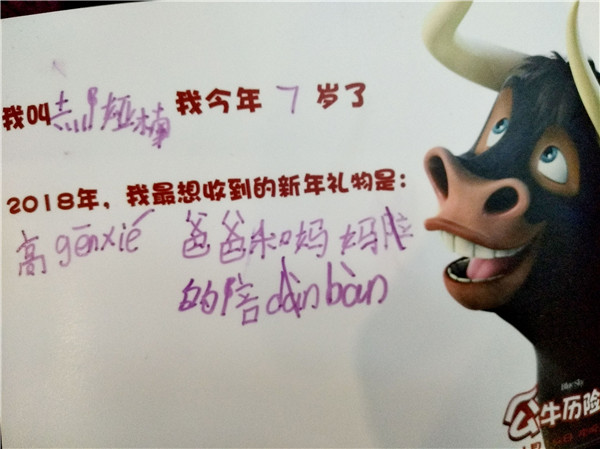 我叫 娅楠 我今年 7 岁了
2018年，我最想收到的新年礼物是：
高gēnxié 爸爸和妈妈
的陪 bàn
Blue Sky
公牛历险